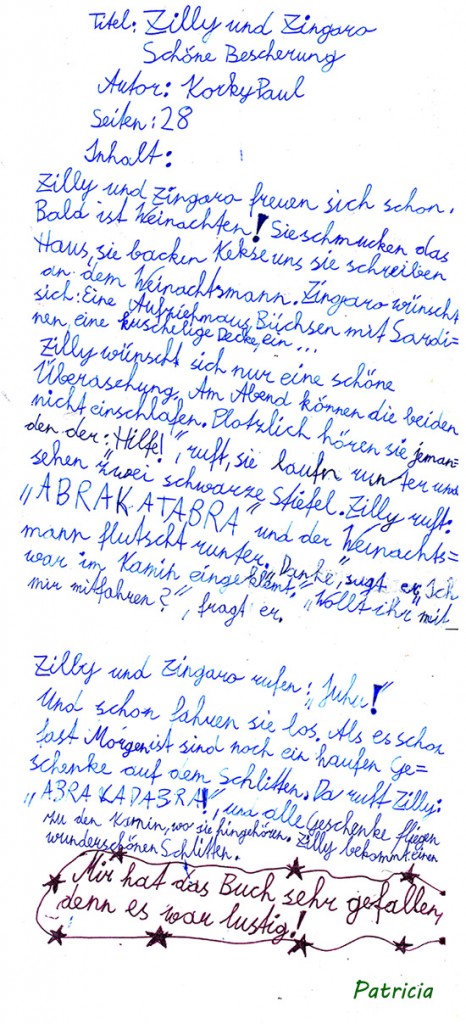 Titel: Zilly und Zingaro
Schöne Bescherung
Autor: KorkyPaul
Seiten: 28
Inhalt:
Zilly und Zingaro freuen sich schon.
Bald ist Weinachten! Sie schmucken das
Haus, sie backen Kekse uns sie schreiben
an dem Weinachtsmann. Zingaro wünscht
sich: Eine Aufziehmaus, Büchsen mit Sardi=
nen, eine kuschelige Decke, ein ...
Zilly wünscht sich nur eine schöne
Überasehung. Am Abend können die beiden
nicht einschlafen. Plotzlich hören sie jeman=
den der: „Hilfe!", ruft, sie laufn runter und
sehen zwei schwarze Stiefel. Zilly ruft:
„ABRAKATABRA" und der Weinachts=
mann flutscht runter. „Danke", sagt er, „Ich
war im Kamin eingeklemt." „Wollt ihr mit
mir mitfahren?", fragt er.
Zilly und Zingaro rufen: „Juhu!"
Und schon fahren sie los. Als es schon
fast Morgen ist sind noch ein haufen Ge=
schenke auf dem Schlitten. Da ruft Zilly:
„ABRAKADABRA!", und alle Geschenke fliegen
zu den Kamin, wo sie hingehören. Zilly bekommt einen
wunderschönen Schlitten.
Mir hat das Buch sehr gefallen,
denn es war lustig!
Patricia